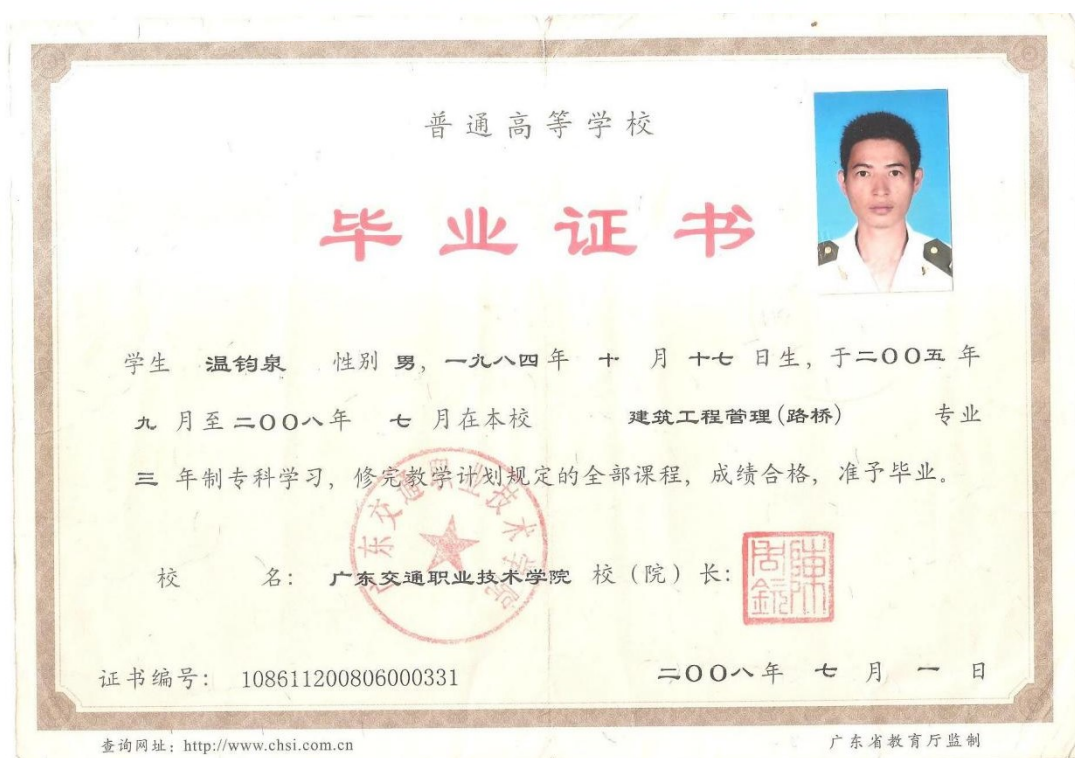 普通高等学校
毕业证书
学生 温钧泉 性别 男，一九八四年 十 月 十七 日生，于二00五 年
九 月至二00八年 七 月在本校 建筑工程管理(路桥) 专业
三 年制专科学习，修完教学计划规定的全部课程，成绩合格，准予毕业。
广东交通职业技术学院
校 名： 广东交通职业技术学院 校（院）长：
证书编号： 108611200806000331 二00八年 七 月 一 日
查询网址：http://www.chsi.com.cn 广东省教育厅监制